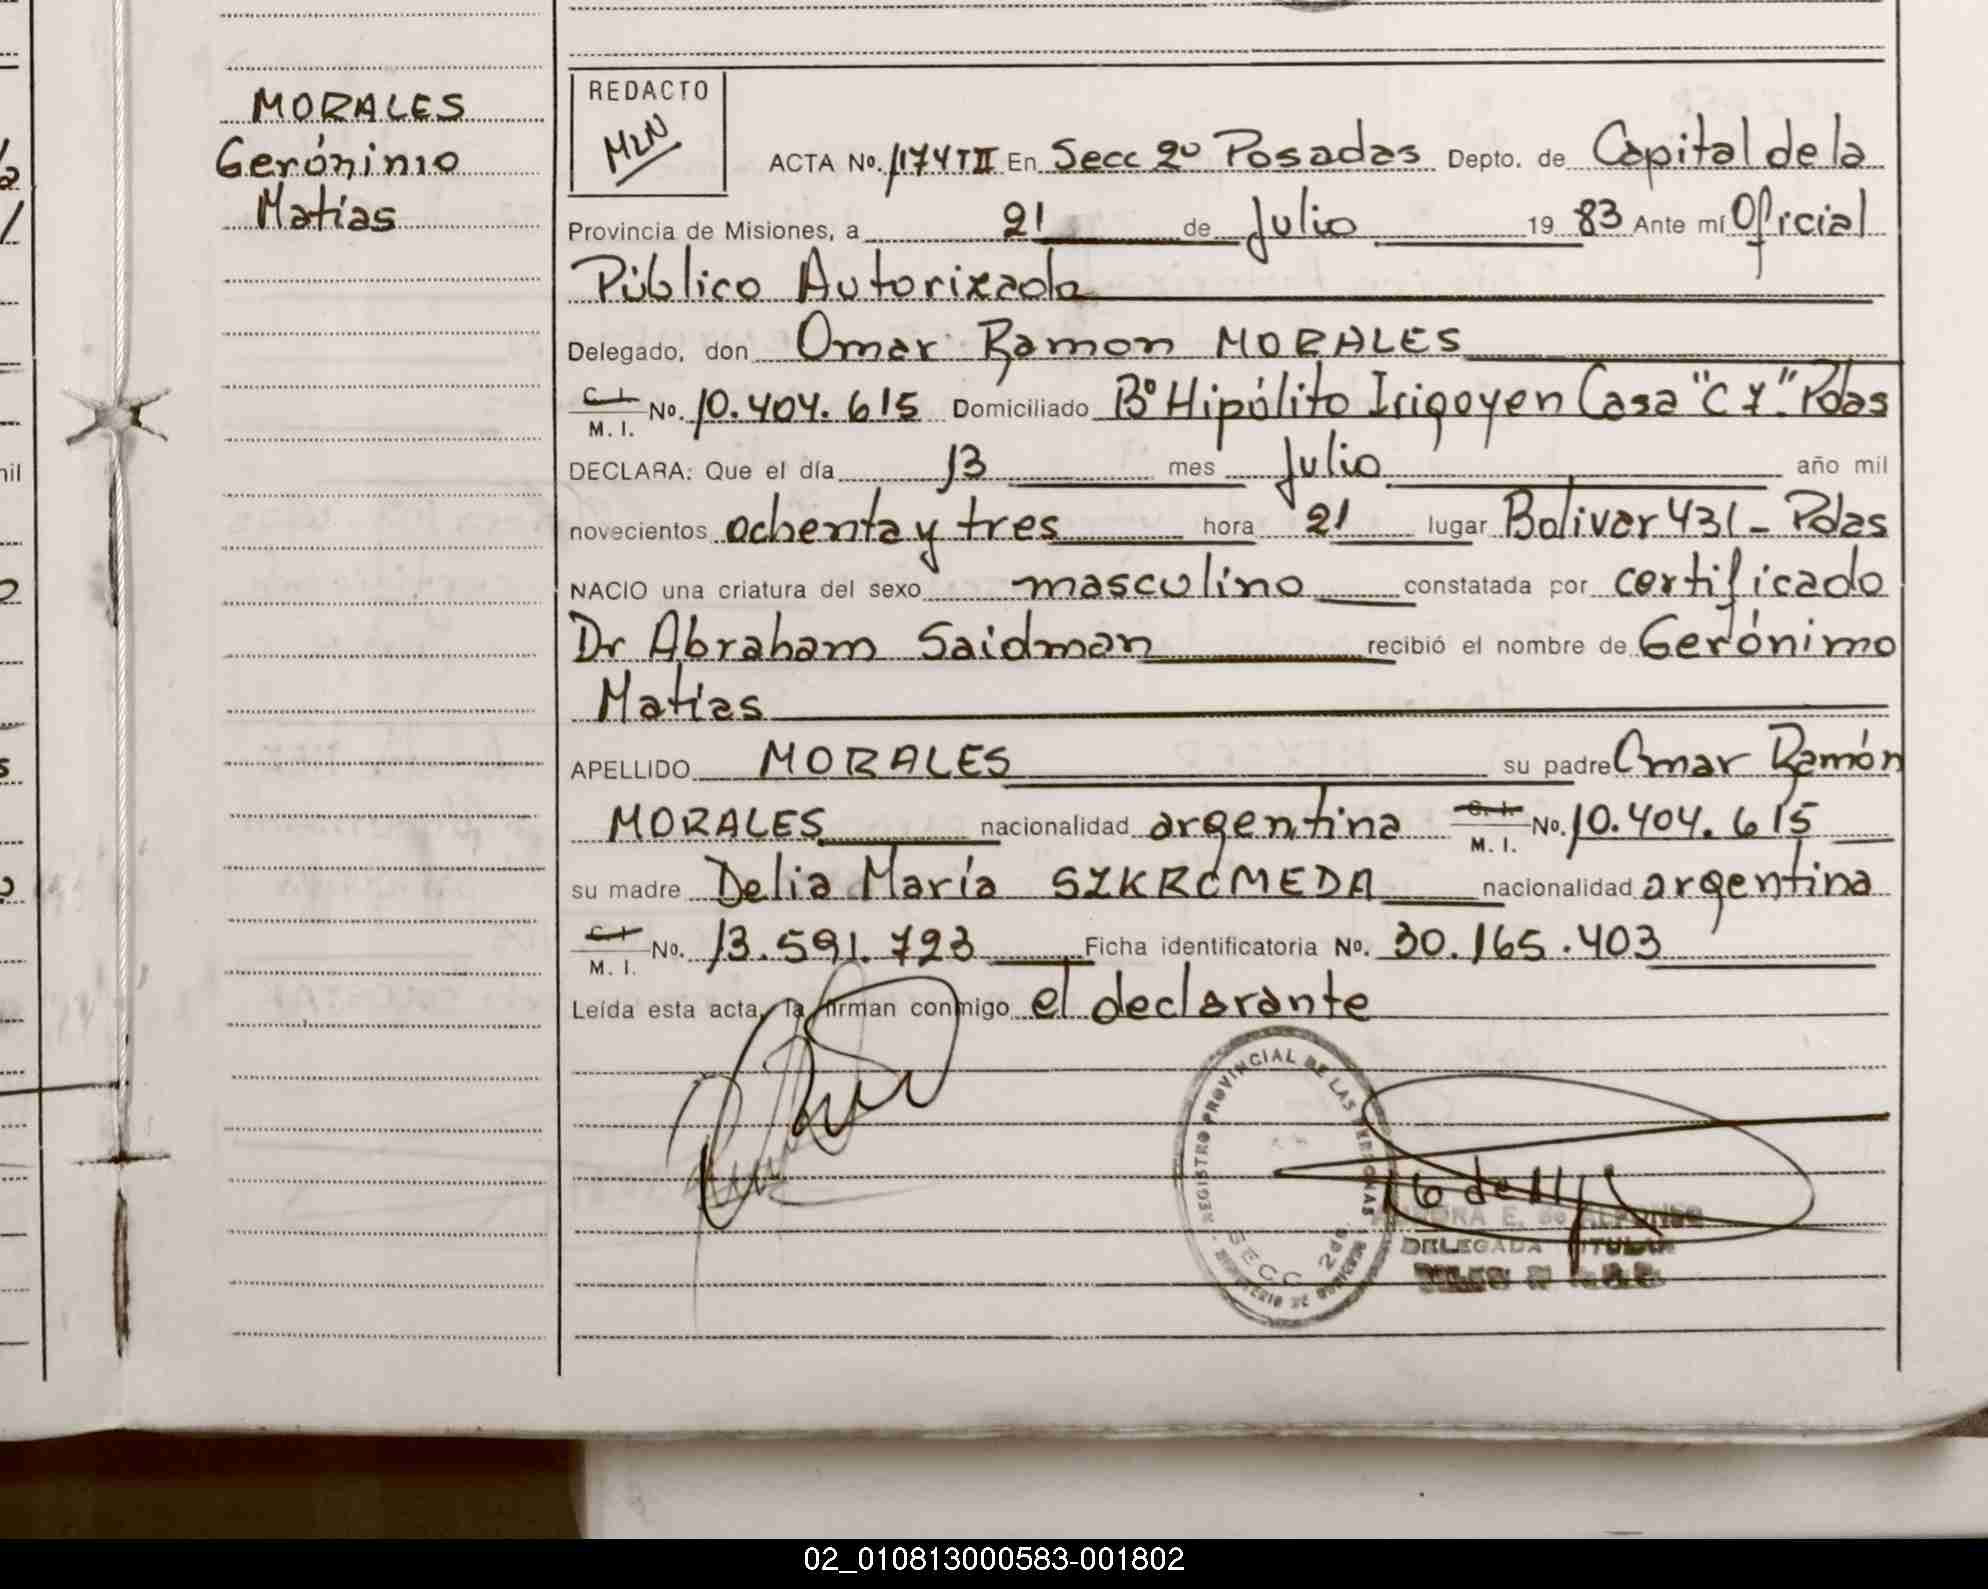 MORALES
Gerónimo
Matías
REDACTO
MLN
ACTA No. 1174 T II En Secc 2º Posadas Depto. de Capital de la
Provincia de Misiones, a 21 de Julio 19 83 Ante mí Oficial
Público Autorizado
Delegado, don Omar Ramon MORALES
C. I.
M. I. No. 10.404.615 Domiciliado Bº Hipólito Irigoyen Casa "C 7" Pdas
DECLARA: Que el día 13 mes Julio año mil
novecientos ochenta y tres hora 21 lugar Bolivar 431 - Pdas
NACIO una criatura del sexo masculino constatada por certificado
Dr Abraham Saidman recibió el nombre de Gerónimo
Matías
APELLIDO MORALES su padre Omar Ramón
MORALES nacionalidad argentina C. I. M. I. No. 10.404.615
su madre Delia María SZKROMEDA nacionalidad argentina
C. I.
M. I. No. 13.591.723 Ficha identificatoria No. 30.165.403
Leída esta acta, la firman conmigo el declarante
REGISTRO PROVINCIAL DE LAS PERSONAS
SECC 2da.
AURORA E. de ALFONSO
DELEGADA TITULAR
02_010813000583-001802